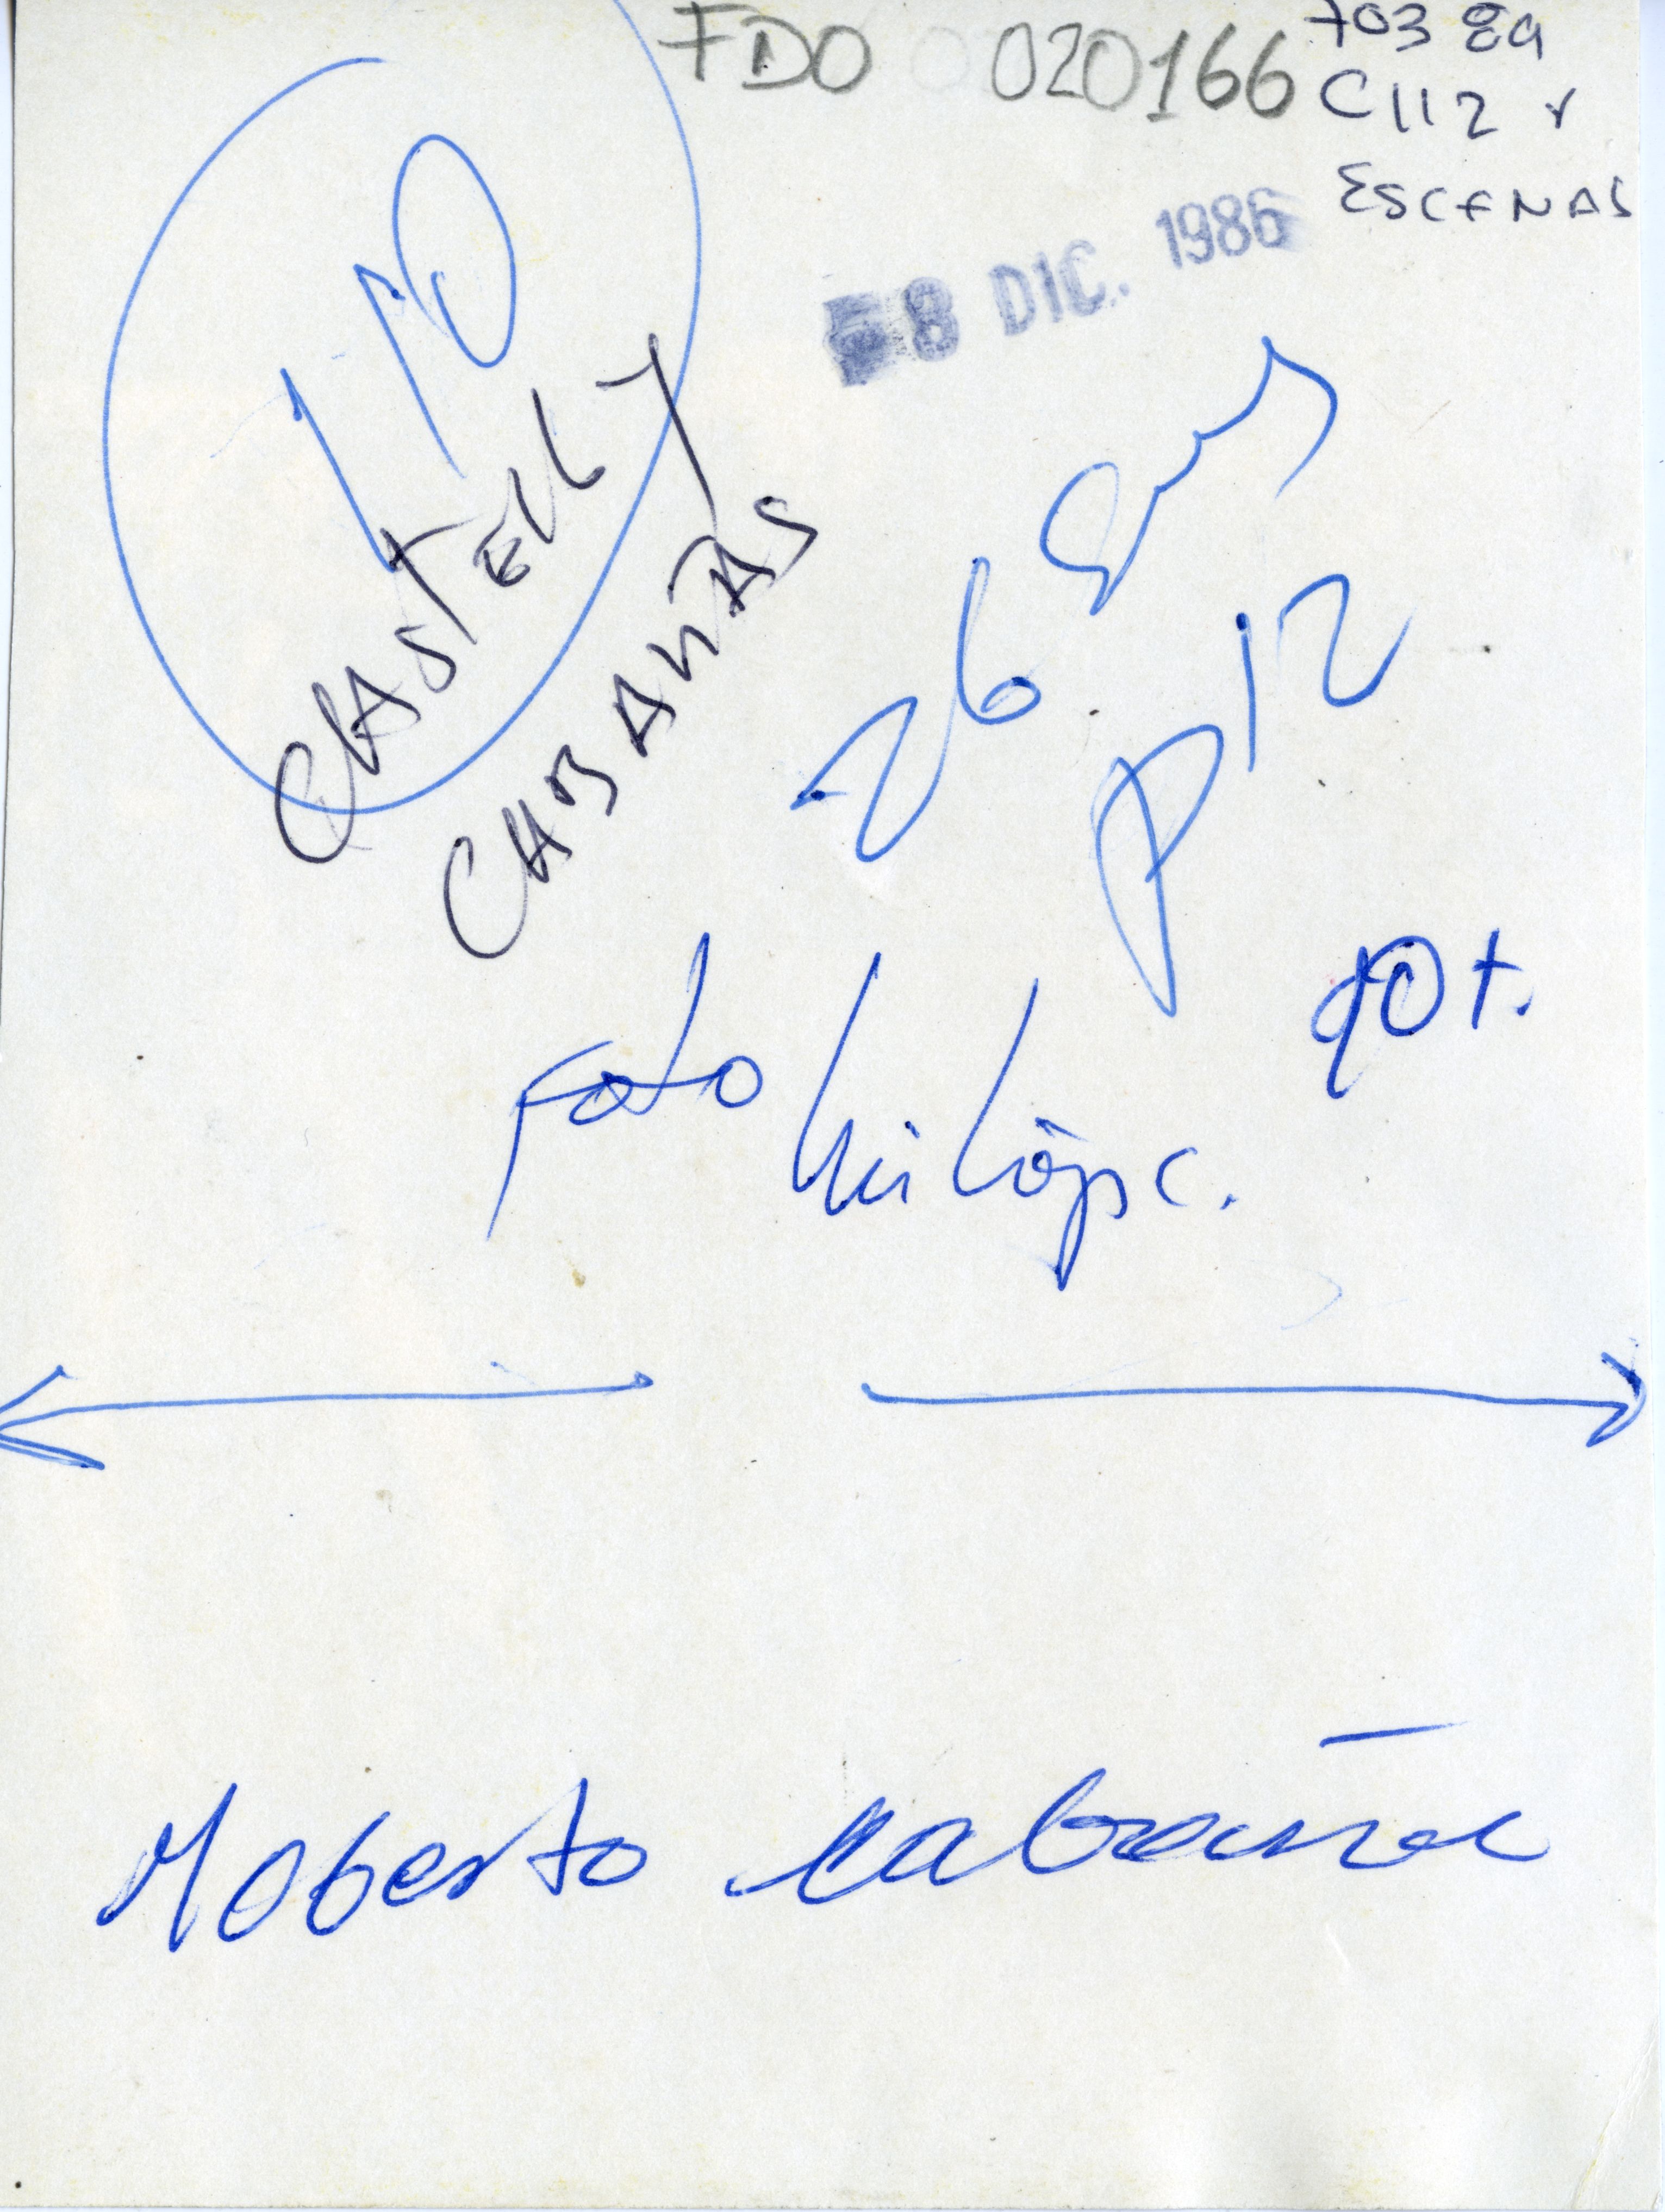 FDO 020166
703 89
C112 r
ESCENAS
8 DIC. 1986
110
CASTELL Y
CABAÑAS
26 cms
P12
90t.
Foto
Roberto Cabañas